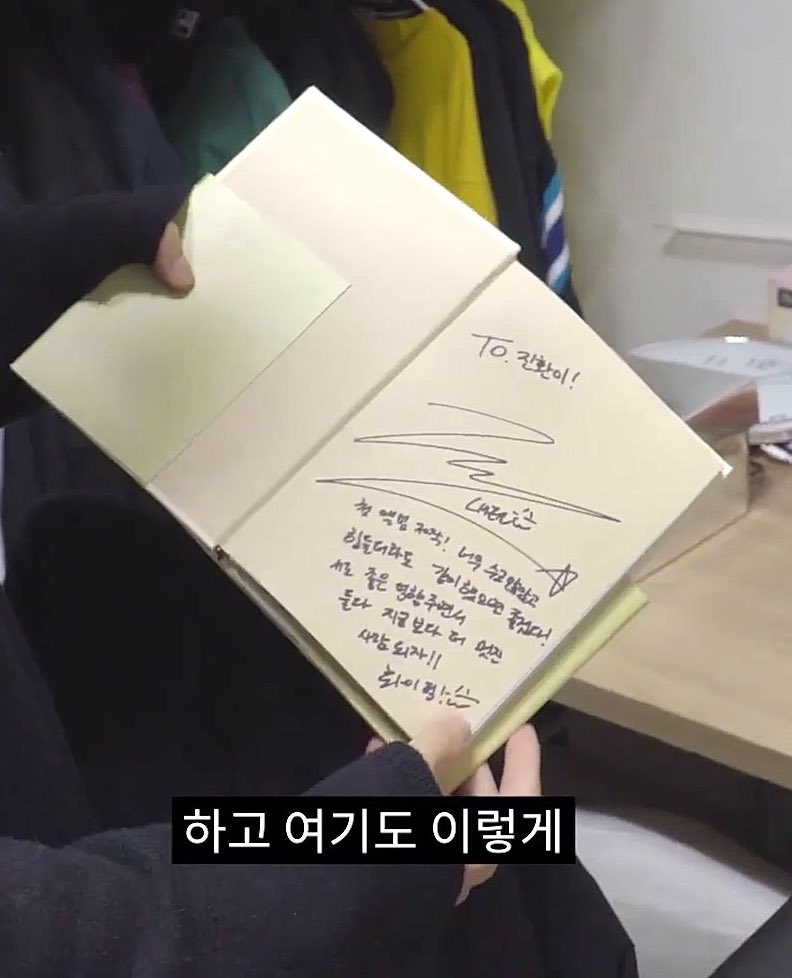 To. 진환이!
첫 앨범 제작! 너무 수고많았고
힘들더라도 같이 했으면 좋겠다!
서로 좋은 영향 주면서
둘다 지금보다 더 멋진
사람 되자!!
화이팅!
하고 여기도 이렇게